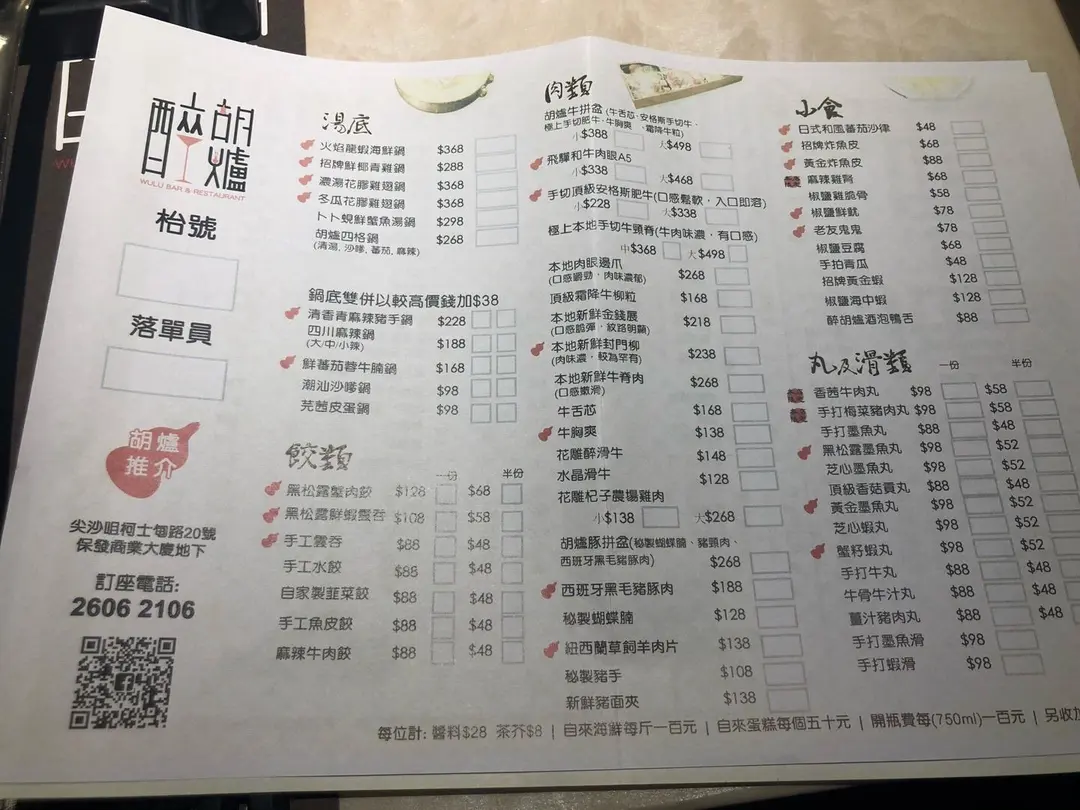 醉胡爐
WULU BAR & RESTAURANT
枱號
落單員
胡爐
推介
尖沙咀柯士甸路20號
保發商業大廈地下
訂座電話:
2606 2106
湯底
火焰龍蝦海鮮鍋 $368
招牌鮮椰青雞鍋 $288
濃湯花膠雞翅鍋 $368
冬瓜花膠雞翅鍋 $368
卜卜蜆鮮蟹魚湯鍋 $298
胡爐四格鍋 $268
(清湯, 沙嗲, 蕃茄, 麻辣)
鍋底雙併以較高價錢加$38
清香青麻辣豬手鍋 $228
四川麻辣鍋 $188
(大/中/小辣)
鮮蕃茄蓉牛腩鍋 $168
潮汕沙嗲鍋 $98
芫茜皮蛋鍋 $98
餃類
一份 半份
黑松露蟹肉餃 $128 $68
黑松露鮮蝦雲吞 $108 $58
手工雲吞 $88 $48
手工水餃 $88 $48
自家製韮菜餃 $88 $48
手工魚皮餃 $88 $48
麻辣牛肉餃 $88 $48
肉類
胡爐牛拼盆(牛舌芯、安格斯手切牛、
極上手切肥牛、牛胸爽、霜降牛粒)
小$388 大$498
飛驒和牛肉眼A5
小$338 大$468
手切頂級安格斯肥牛(口感鬆軟，入口即溶)
小$228 大$338
極上本地手切牛頸脊(牛肉味濃，有口感)
中$368 大$498
本地肉眼邊爪 $268
(口感嚼勁，肉味濃郁)
頂級霜降牛柳粒 $168
本地新鮮金錢展 $218
(口感韾彈，紋路明顯)
本地新鮮封門柳 $238
(肉味濃，較為罕有)
本地新鮮牛脊肉 $268
(口感嫩滑)
牛舌芯 $168
牛胸爽 $138
花雕醉滑牛 $148
水晶滑牛 $128
花雕杞子農場雞肉
小$138 大$268
胡爐豚拼盆(秘製蝴蝶腩、豬頸肉、
西班牙黑毛豬豚肉) $268
西班牙黑毛豬豚肉 $188
秘製蝴蝶腩 $128
紐西蘭草飼羊肉片 $138
秘製豬手 $108
新鮮豬面夾 $138
小食
日式和風蕃茄沙律 $48
招牌炸魚皮 $68
黃金炸魚皮 $88
麻辣雞腎 $68
椒鹽雞脆骨 $58
椒鹽鮮魷 $78
老友鬼鬼 $78
椒鹽豆腐 $68
手拍青瓜 $48
招牌黃金蝦 $128
椒鹽海中蝦 $128
醉胡爐酒泡鴨舌 $88
丸及滑類 一份 半份
香茜牛肉丸 $98 $58
手打梅菜豬肉丸 $98 $58
手打墨魚丸 $88 $48
黑松露墨魚丸 $98 $52
芝心墨魚丸 $98 $52
頂級香菇貢丸 $88 $48
黃金墨魚丸 $98 $52
芝心蝦丸 $98 $52
蟹籽蝦丸 $98 $52
手打牛丸 $88 $48
牛骨牛汁丸 $88 $48
薑汁豬肉丸 $88 $48
手打墨魚滑 $98
手打蝦滑 $98
每位計: 醬料$28 茶芥$8 | 自來海鮮每斤一百元 | 自來蛋糕每個五十元 | 開瓶費每(750ml)一百元 | 另收加